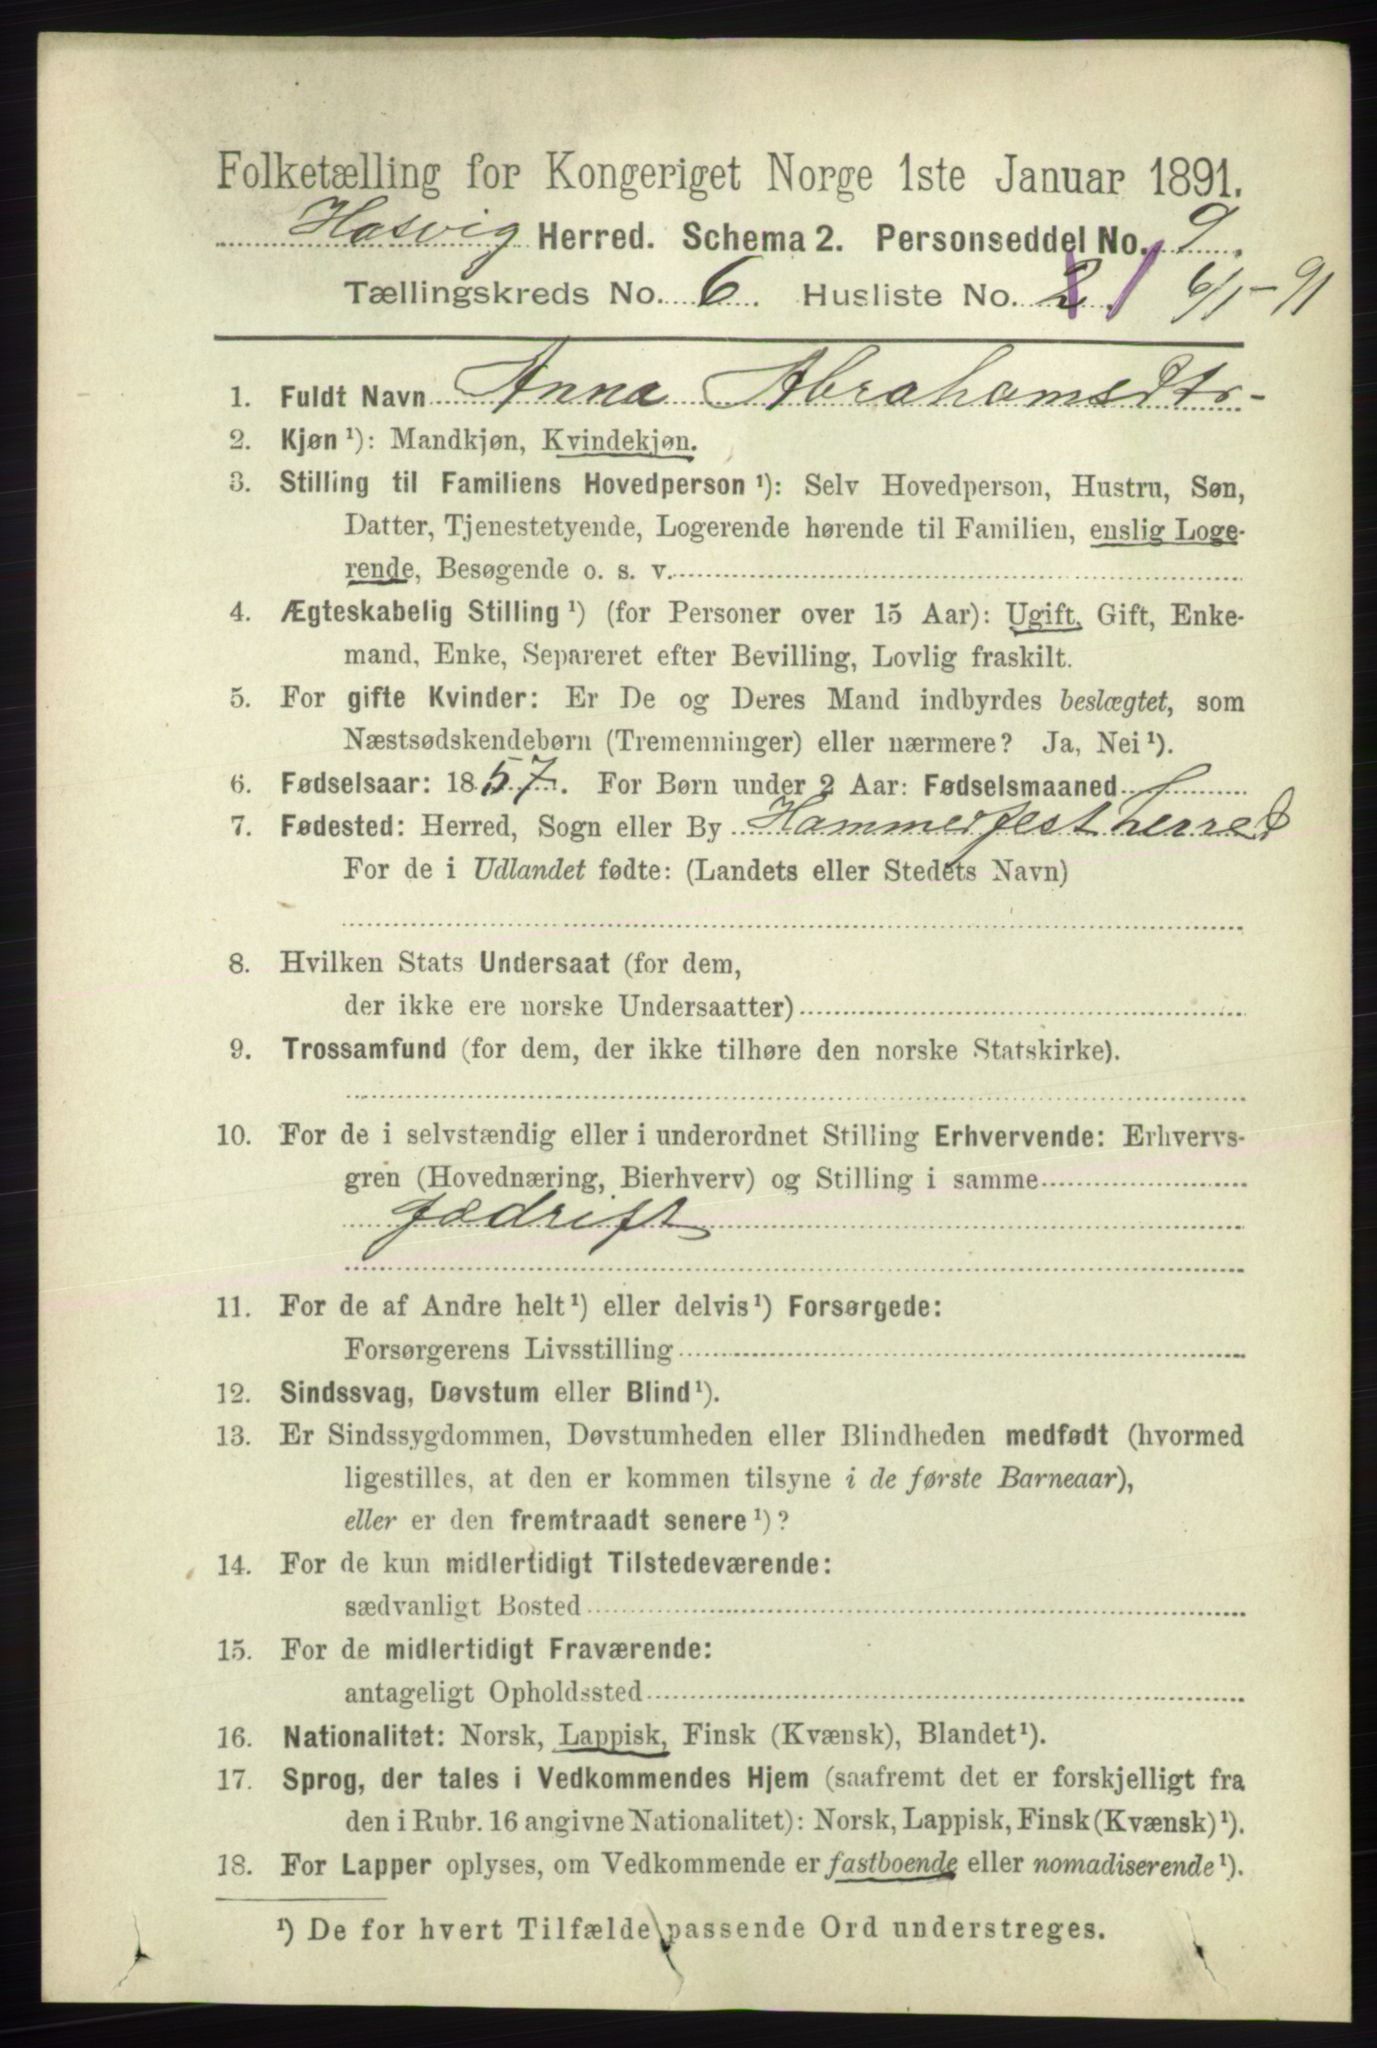 Folketælling for Kongeriget Norge 1ste Januar 1891.
Hasvig Herred. Schema 2. Personseddel No. 9.
Tællingskreds No. 6. Husliste No. 2. 1 6/1-91
1. Fuldt Navn Anna Abrahamsdtr-
2. Kjøn ¹): Mandkjøn, Kvindekjøn.
3. Stilling til Familiens Hovedperson ¹): Selv Hovedperson, Hustru, Søn,
Datter, Tjenestetyende, Logerende hørende til Familien, enslig Loge-
rende, Besøgende o. s. v.
4. Ægteskabelig Stilling ¹) (for Personer over 15 Aar): Ugift, Gift, Enke-
mand, Enke, Separeret efter Bevilling, Lovlig fraskilt.
5. For gifte Kvinder: Er De og Deres Mand indbyrdes beslægtet, som
Næstsødskendebørn (Tremenninger) eller nærmere? Ja, Nei ¹).
6. Fødselsaar: 1857. For Børn under 2 Aar: Fødselsmaaned
7. Fødested: Herred, Sogn eller By Hammerfest herred
For de i Udlandet fødte: (Landets eller Stedets Navn)
8. Hvilken Stats Undersaat (for dem,
der ikke ere norske Undersaatter)
9. Trossamfund (for dem, der ikke tilhøre den norske Statskirke).
10. For de i selvstændig eller i underordnet Stilling Erhvervende: Erhvervs-
gren (Hovednæring, Bierhverv) og Stilling i samme
fædrift
11. For de af Andre helt ¹) eller delvis ¹) Forsørgede:
Forsørgerens Livsstilling
12. Sindssvag, Døvstum eller Blind ¹).
13. Er Sindssygdommen, Døvstumheden eller Blindheden medfødt (hvormed
ligestilles, at den er kommen tilsyne i de første Barneaar),
eller er den fremtraadt senere ¹)?
14. For de kun midlertidigt Tilstedeværende:
sædvanligt Bosted
15. For de midlertidigt Fraværende:
antageligt Opholdssted
16. Nationalitet: Norsk, Lappisk, Finsk (Kvænsk), Blandet ¹).
17. Sprog, der tales i Vedkommendes Hjem (saafremt det er forskjelligt fra
den i Rubr. 16 angivne Nationalitet): Norsk, Lappisk, Finsk (Kvænsk) ¹).
18. For Lapper oplyses, om Vedkommende er fastboende eller nomadiserende ¹).
¹) De for hvert Tilfælde passende Ord understreges.